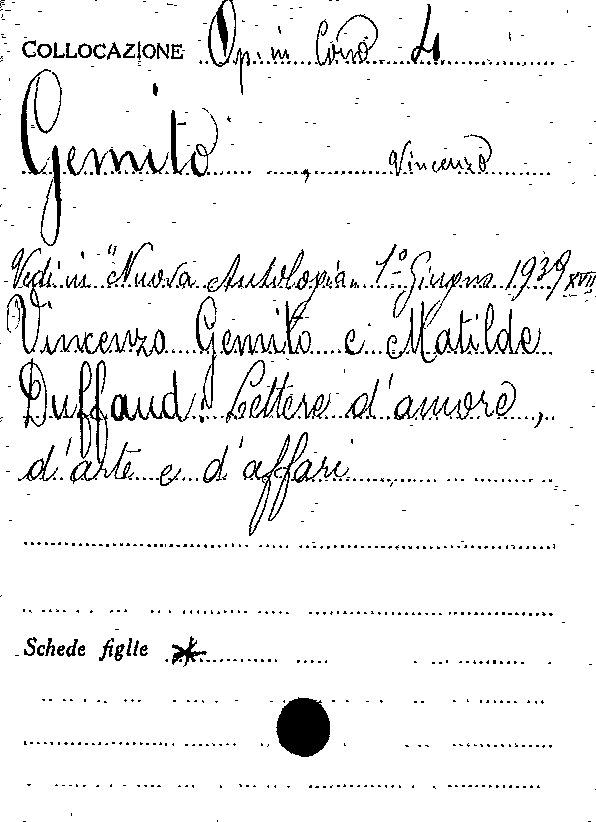 COLLOCAZIONE Op. in Corso 4
Gemito , Vincenzo
Vedi in "Nuova Antologia„ 1° Giugno 1939 XVII
Vincenzo Gemito e Matilde
Duffaud: Lettere d'amore,
d'arte e d'affari
Schede figlie *